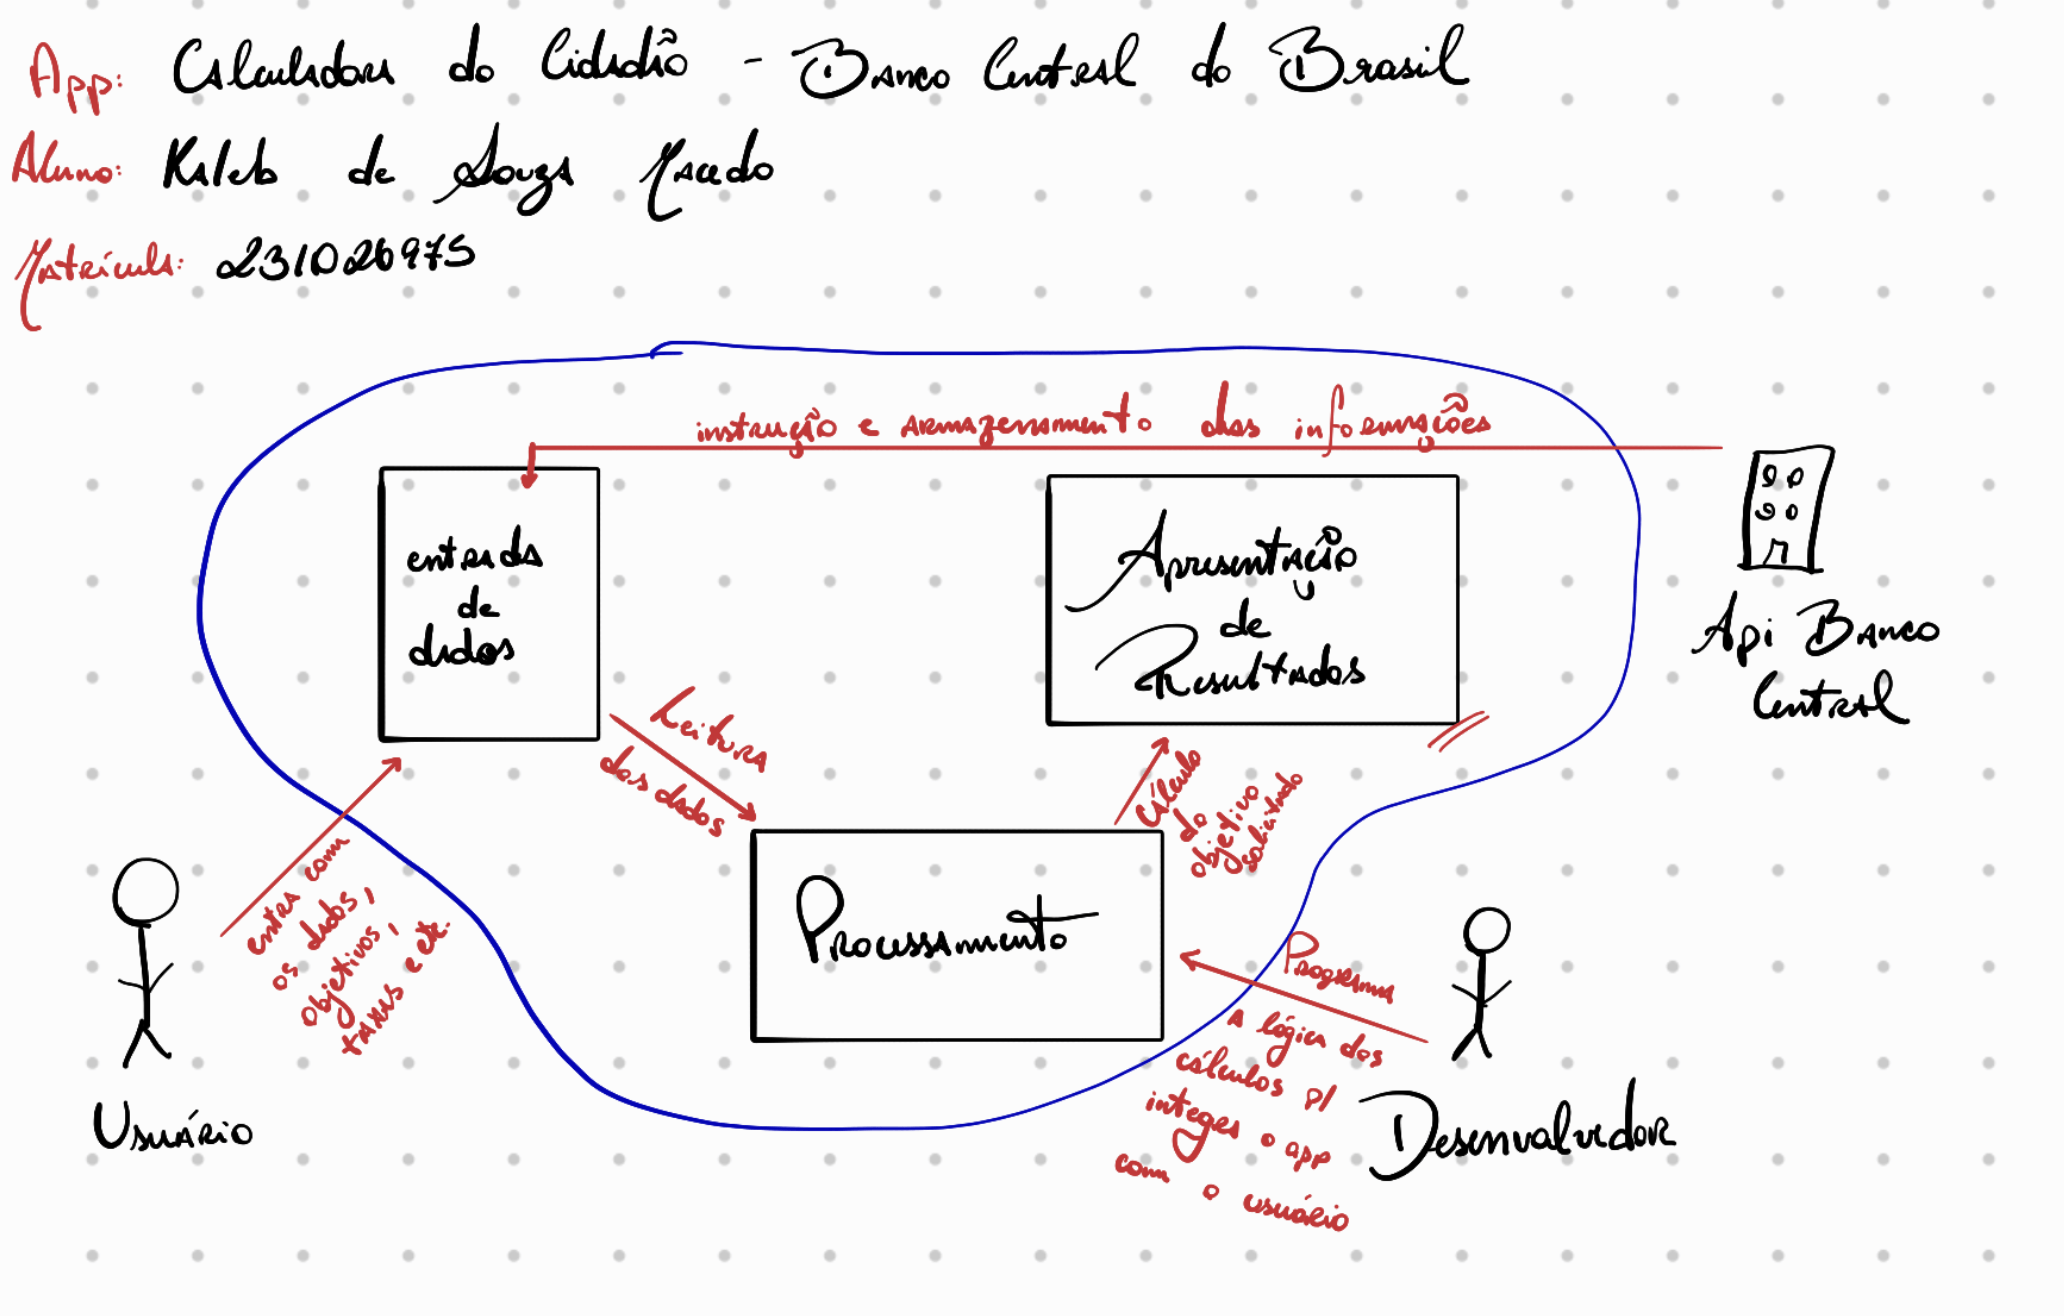 App: Calculadora do Cidadão - Banco Central do Brasil
Aluno: Kaleb de Souza Macedo
Matrícula: 231026975
instrução e armazenamento das informações
entrada
de
dados
Apresentação
de
Resultados
Api Banco
Central
Leitura
dos dados
Cálculo
do
objetivo
solicitado
Processamento
entra com
os dados,
objetivos,
taxas e etc.
Usuário
Programa
a lógica dos
cálculos p/
integrar o app
com o usuário
Desenvolvedor